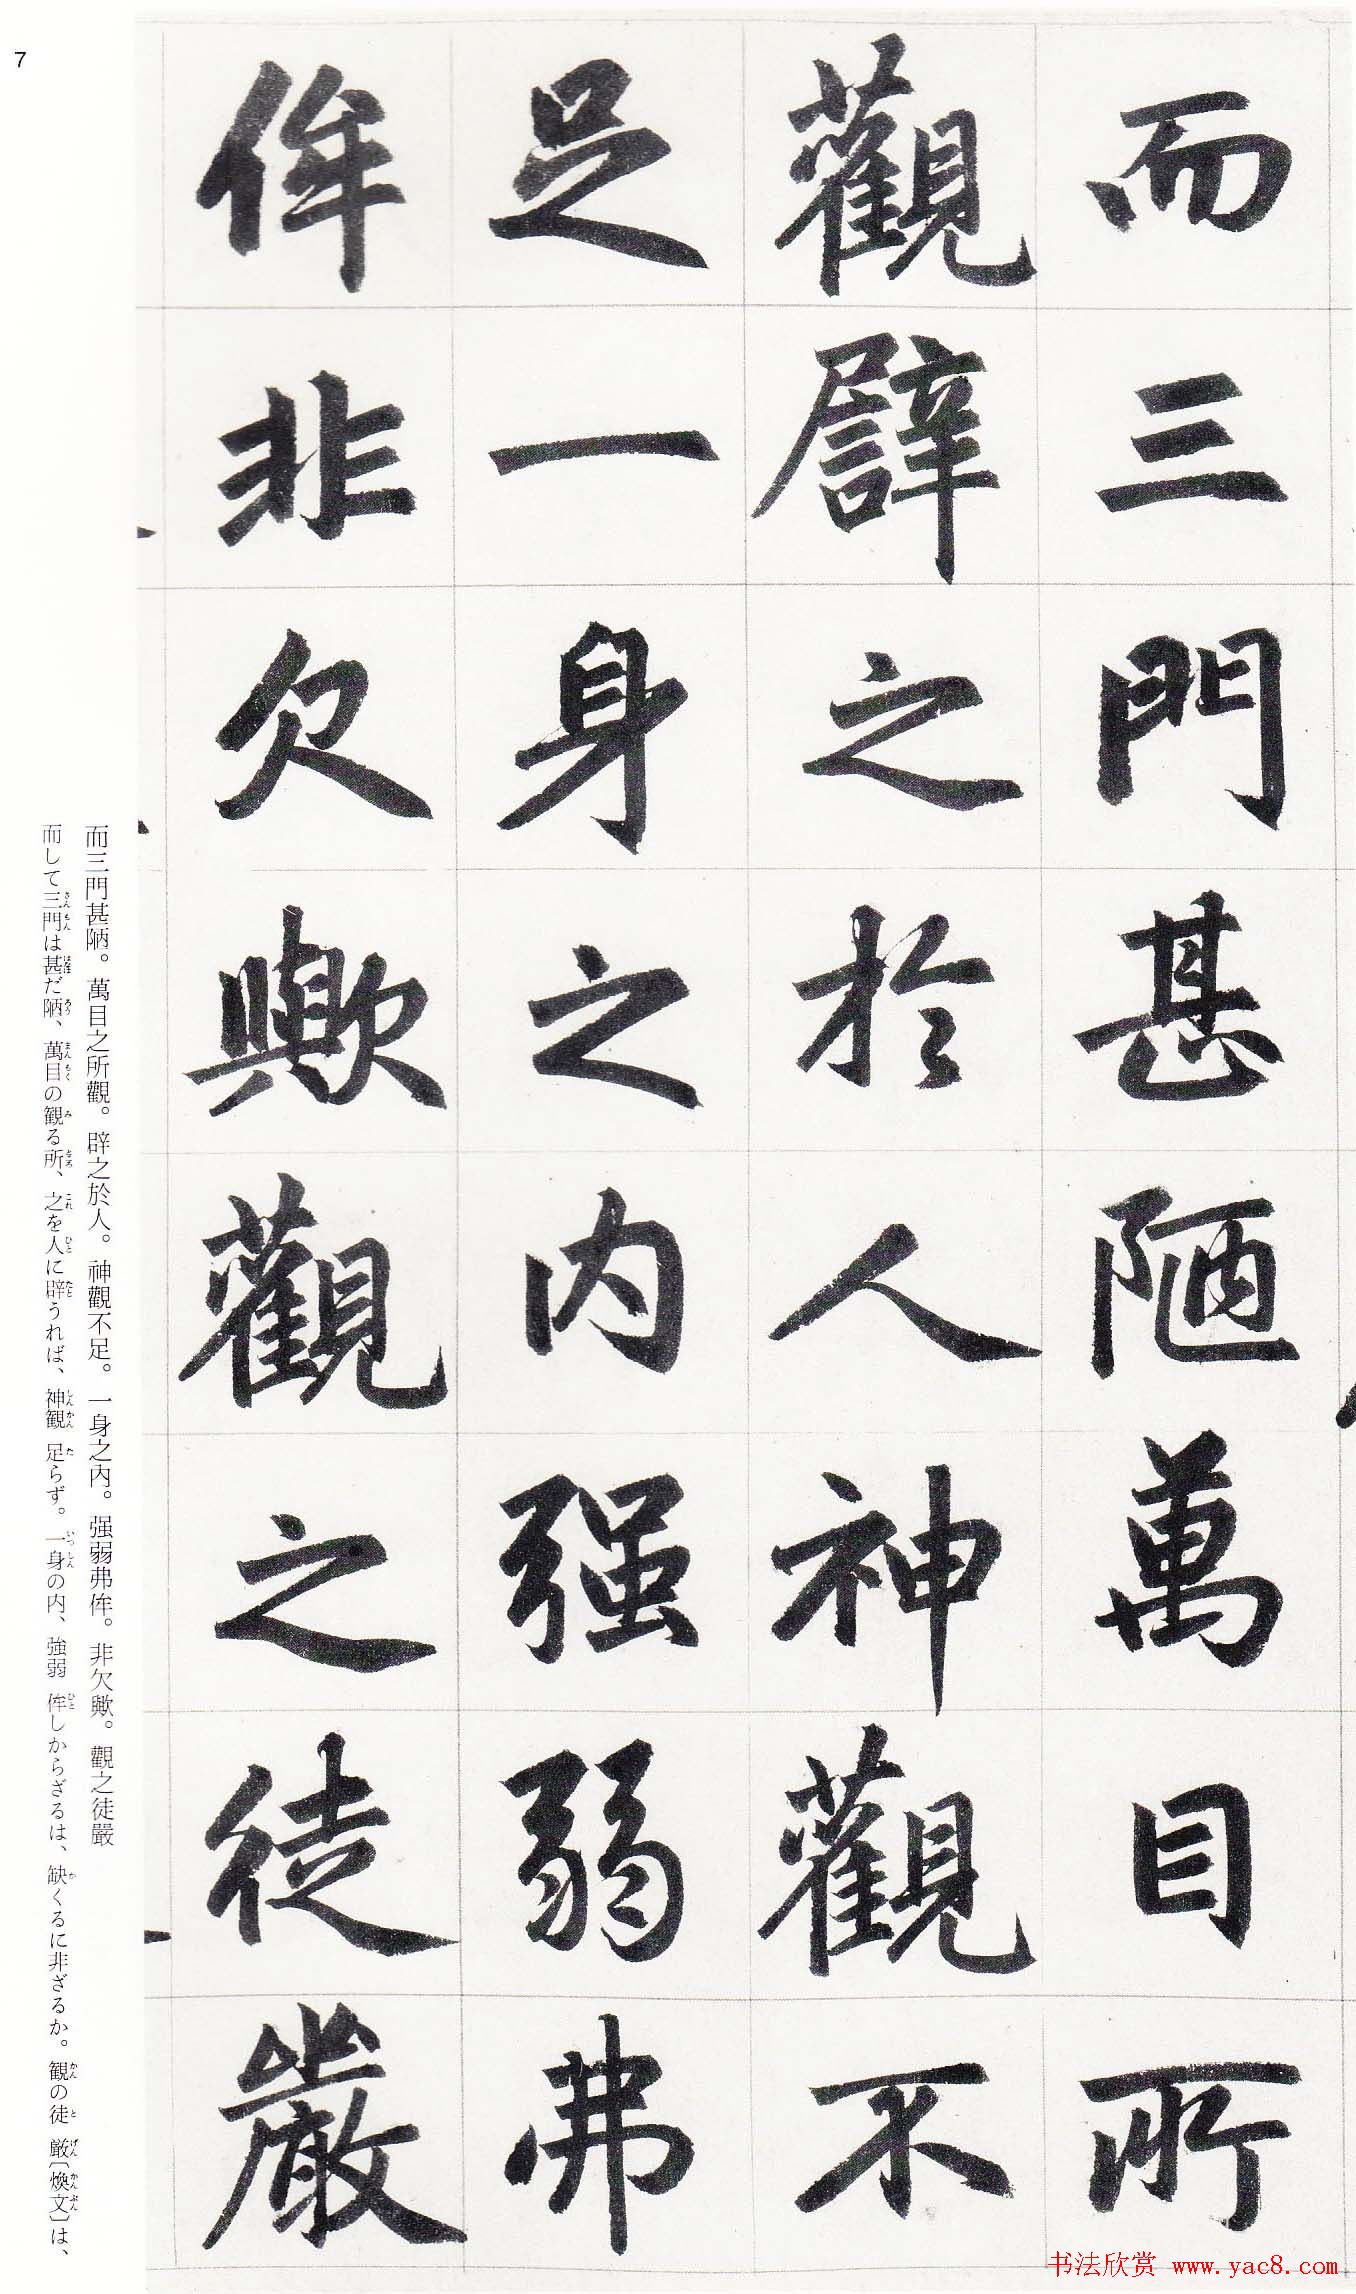 而三門甚陋萬目所
觀譬之於人神觀不
足一身之内强弱弗
侔非欠歟觀之徒嚴
而三門甚陋。萬目之所觀。辟之於人。神觀不足。一身之内。强弱弗侔。非欠歟。觀之徒嚴
而して三門は甚だ陋、萬目の観る所、之を人に辟うれば、神観 足らず。一身の内、強弱 侔しからざるは、缺くるに非ざるか。観の徒 厳〔煥文〕は、
7
书法欣赏 www.yac8.com